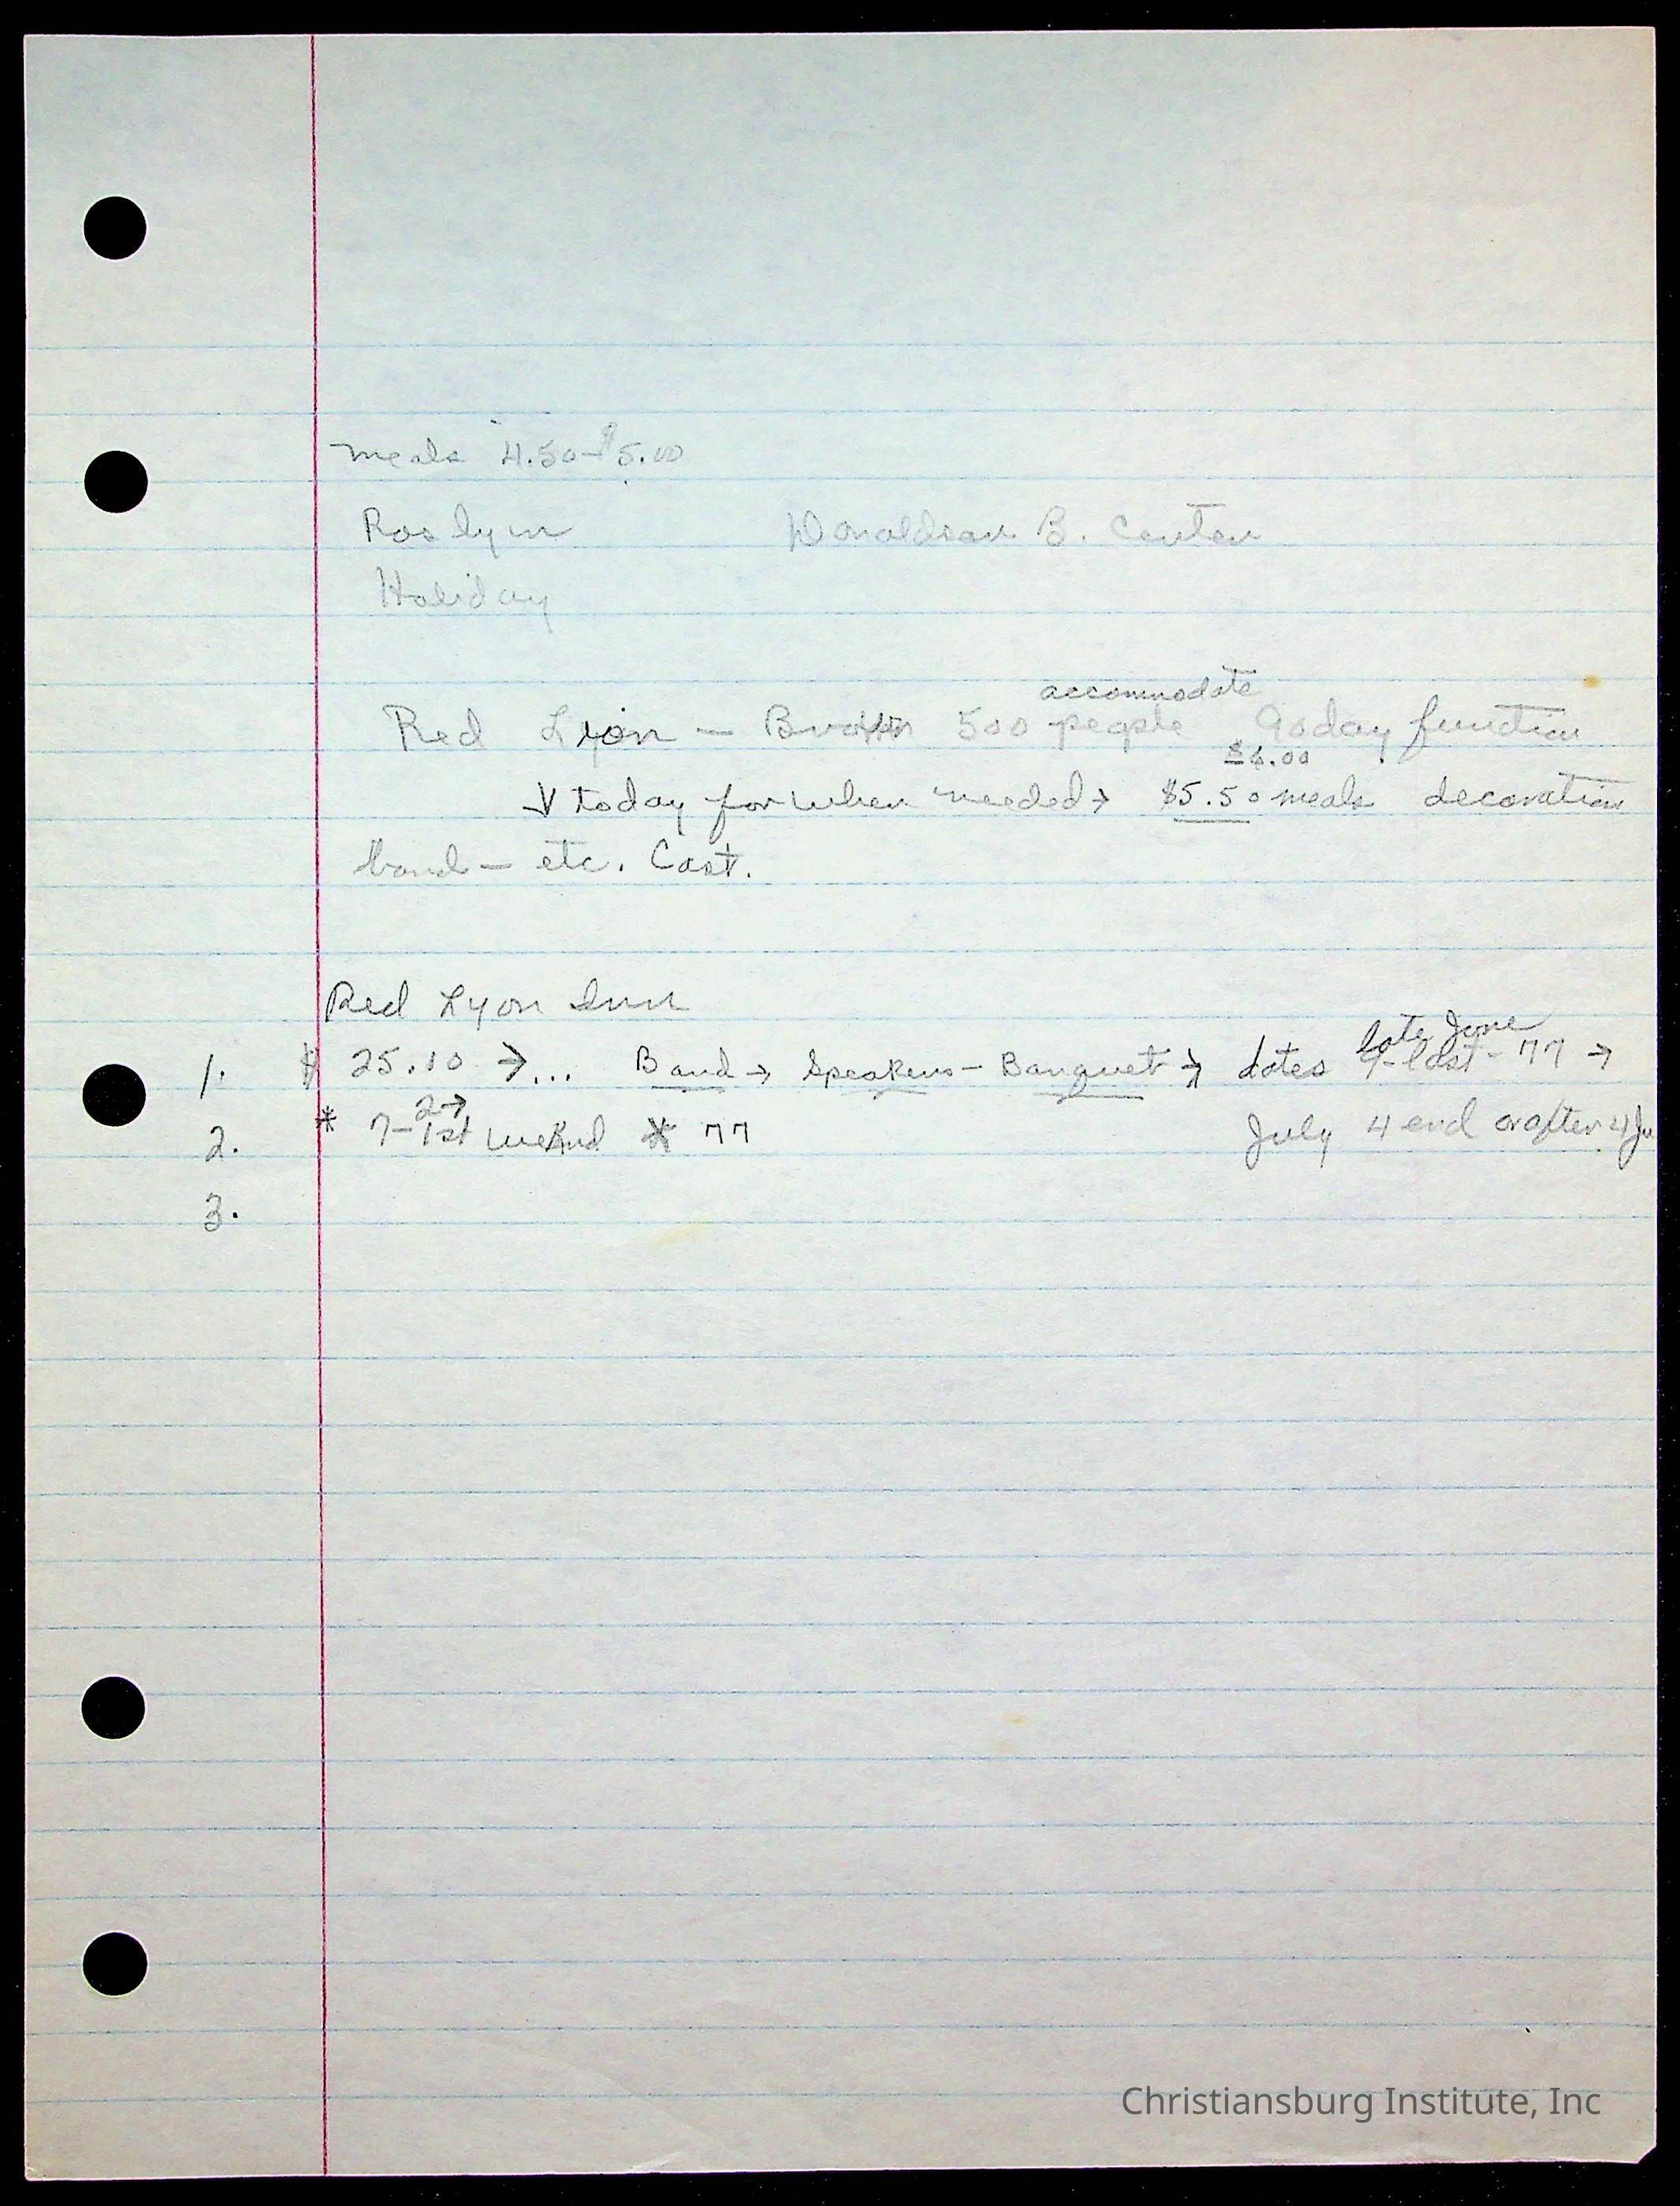 meals 4.50-$5.00
Roslyn Donaldson B. Center
Holiday
accommodate
Red Lyon — 500 people 90 day function
$6.00
today for when needed → $5.50 meals decoration
band — etc. Cost.
Red Lyon Inn
late June
1. $ 25.10 → ... Band → Speakers - Banquet → dates 9-last - 77 →
2 →
2. * 7-1st wekend * 77 July 4 end or after 4 Ju
3.
Christiansburg Institute, Inc